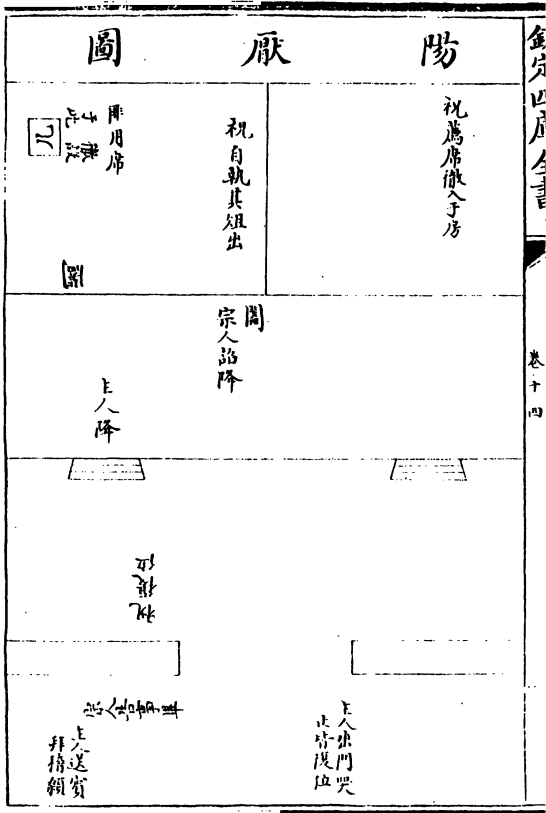 欽定四庫全書
卷十四
陽厭圖
祝薦席徹入于房
祝自執其俎出
厞用席
徹設
于此
几
牖
闔
宗人詔降
主人降
祝復位
宗人告事畢
主人出門哭
止皆復位
主人送賓
拜稽顙